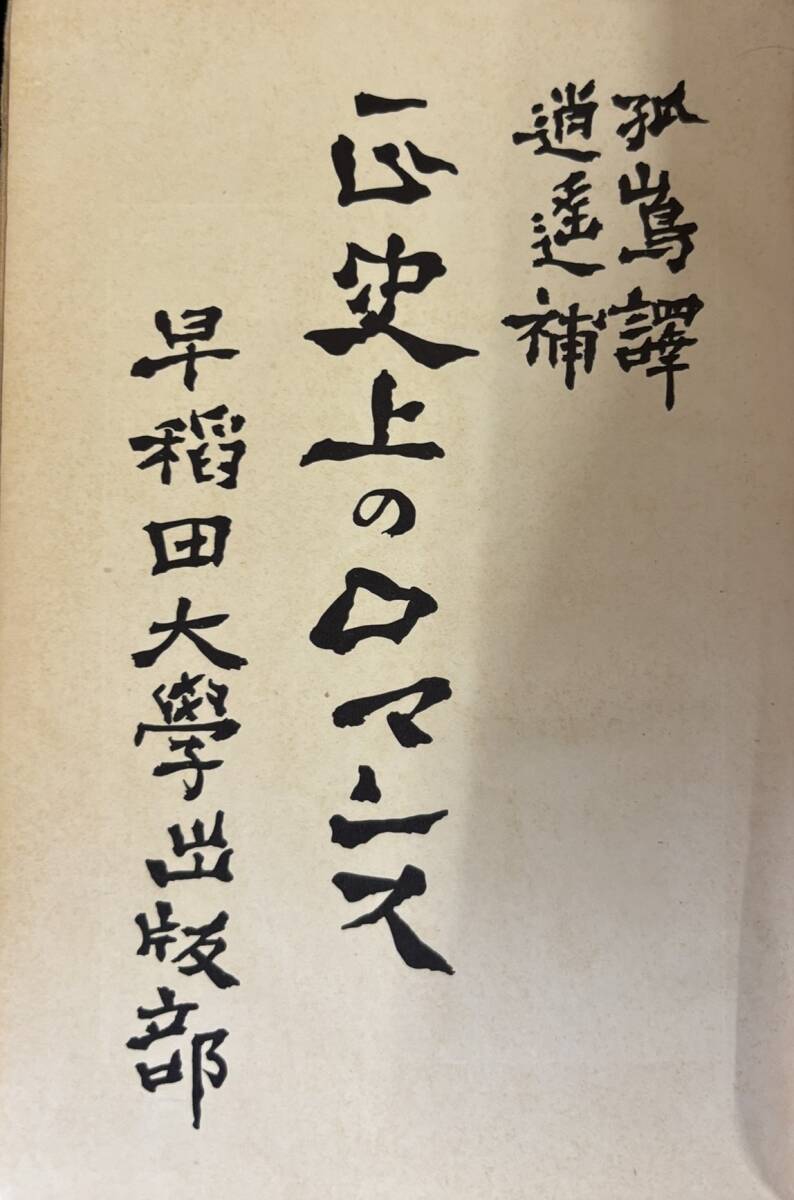 孤嶌譯
逍遥補
正史上のロマンス
早稻田大學出版部